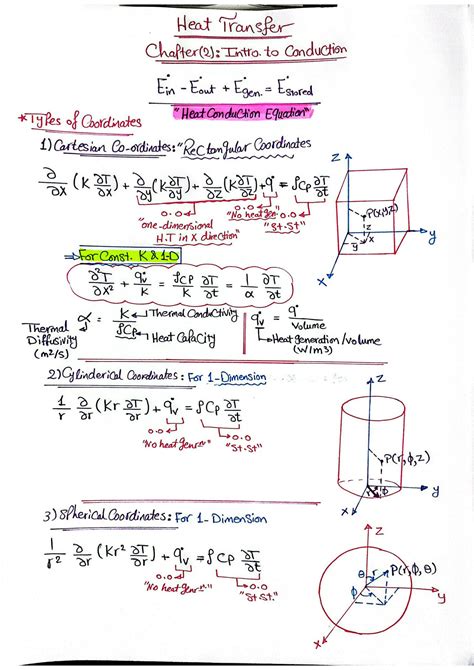 Heat Transfer
Chapter(2): Intro. to Conduction
Ėin - Ėout + Ėgen. = Ėstored
"Heat Conduction Equation"
*Types of Coordinates
1) Cartesian Co-ordinates: "Rectangular Coordinates
∂/∂x (K ∂T/∂x) + ∂/∂y (K ∂T/∂y) + ∂/∂z (K ∂T/∂z) + q̇ = ρCp ∂T/∂t
0.0 0.0 0.0
"one-dimensional H.T in X direction"
"No heat gen"
"St.St"
Z
P(x,y,z)
z
y x
y
x
⇒ For Const. K & 1-D
∂²T/∂x² + q̇v/K = ρCp/K ∂T/∂t = 1/α ∂T/∂t
Thermal Diffusivity (m²/s)
α = K/ρCp
Thermal Conductivity
Heat Capacity
q̇v = q̇/Volume
Heat generation/volume (W/m³)
2) Cylinderical Coordinates: For 1-Dimension
1/r ∂/∂r (Kr ∂T/∂r) + q̇v = ρCp ∂T/∂t
0.0 0.0
"No heat genr."
"St.St."
Z
P(r,φ,z)
r φ
y
x
3) Spherical Coordinates: For 1-Dimension
1/r² ∂/∂r (Kr² ∂T/∂r) + q̇v = ρCp ∂T/∂t
0.0 0.0
"No heat genr."
"St.St."
Z
P(r,φ,θ)
θ r
φ
y
x